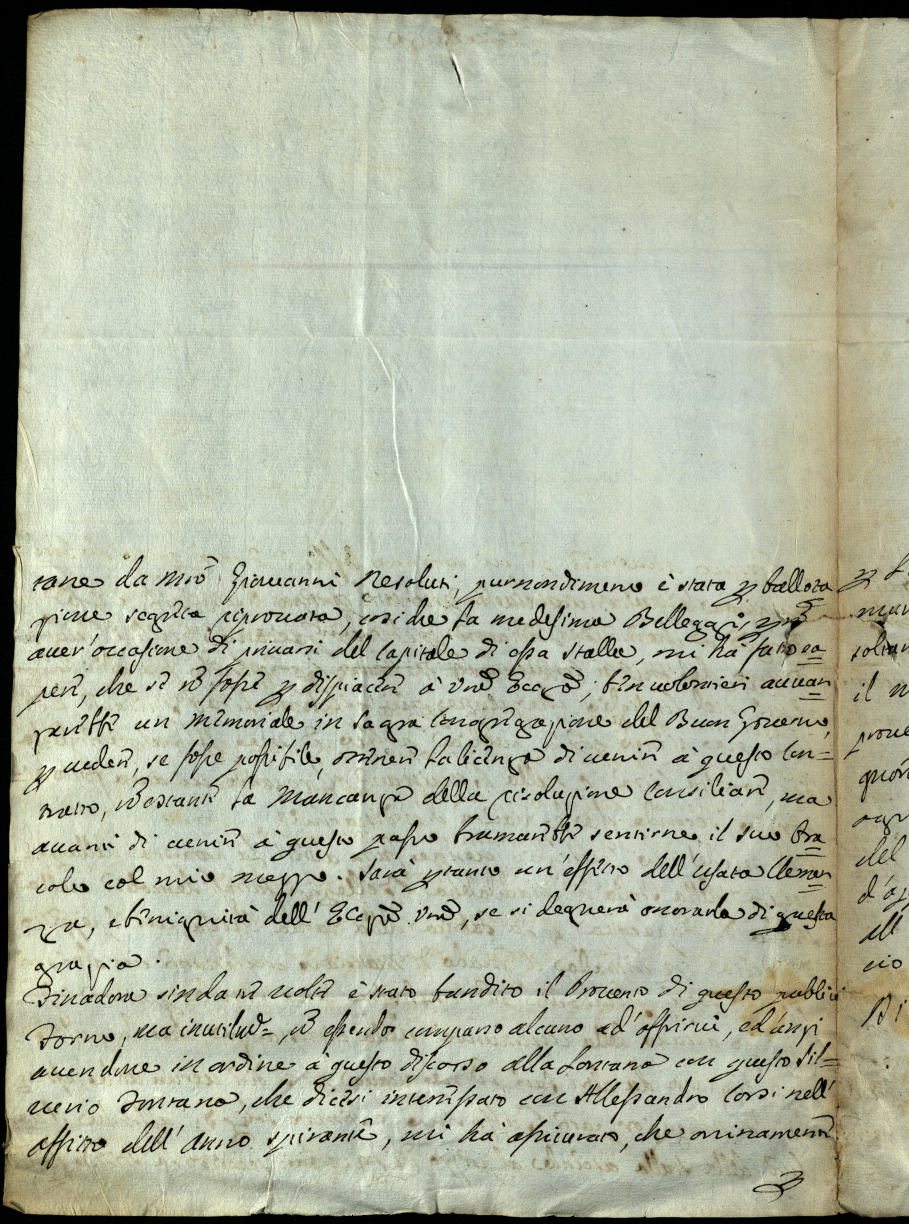 tane da Mrõ Giovanni Resoluti, purnondimeno è stata p ballota
zione segreta riprovata, cosi che la medesima Bellega
aver' occasione di privarsi del Capitale di essa stalla, mi ha fatto sa
pere, che se nõ fosse p dispiacere à Vrã Eccza, ben volontieri avvan
zarebbe un Memoriale in Sagra Congregazione del Buon Governo,
p vedere, se fosse possibile, ottenere la licenza di venire à questo Con=
tratto, nõ ostante la Mancanza della risoluzione Consiliare, ma
avanti di venire à questo passo bramarebbe sentirne il suo Ora
colo col mio mezzo. Sarà ptanto un' effetto dell' usata Clemen
za, e benignità dell' Eccza Vrã, se si degnerà onorarla di questa
grazia.
Finadora sin da tre volte è stato bandito il Provento di questo publico
Forno, ma inutilmẽ, nõ essendo comparso alcuno ad' offrirvi, ed anzi
avendone in ordine à questo discorso alla lontana con questo Sil=
verio Fontana, che dicesi interessato con Alessandro Corsi nell'
affitto dell' Anno spirante, mi hà assicurato, che ottinamente